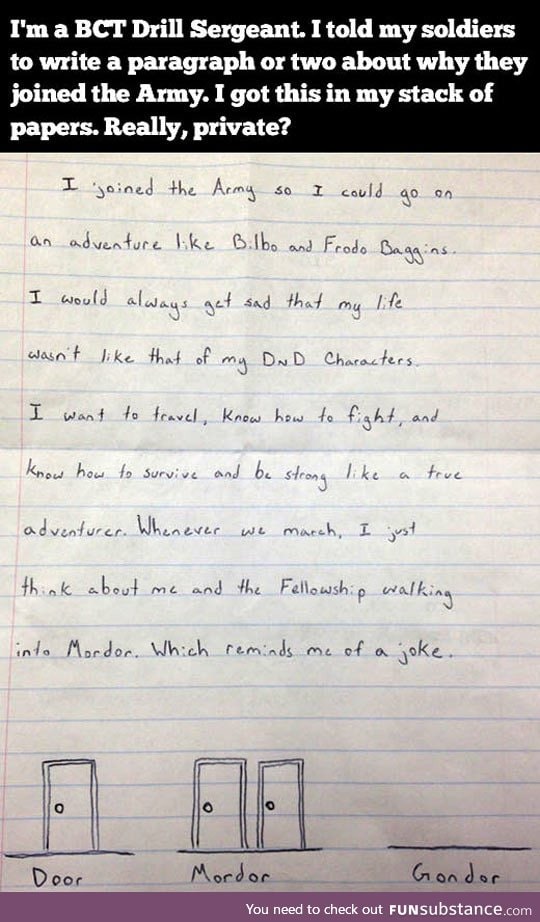 I'm a BCT Drill Sergeant. I told my soldiers
to write a paragraph or two about why they
joined the Army. I got this in my stack of
papers. Really, private?
I joined the Army so I could go on
an adventure like Bilbo and Frodo Baggins.
I would always get sad that my life
wasn't like that of my DnD Characters.
I want to travel, Know how to fight, and
Know how to survive and be strong like a true
adventurer. Whenever we march, I just
think about me and the Fellowship walking
into Mordor. Which reminds me of a joke.
Door Mordor Gondor
You need to check out FUNsubstance.com